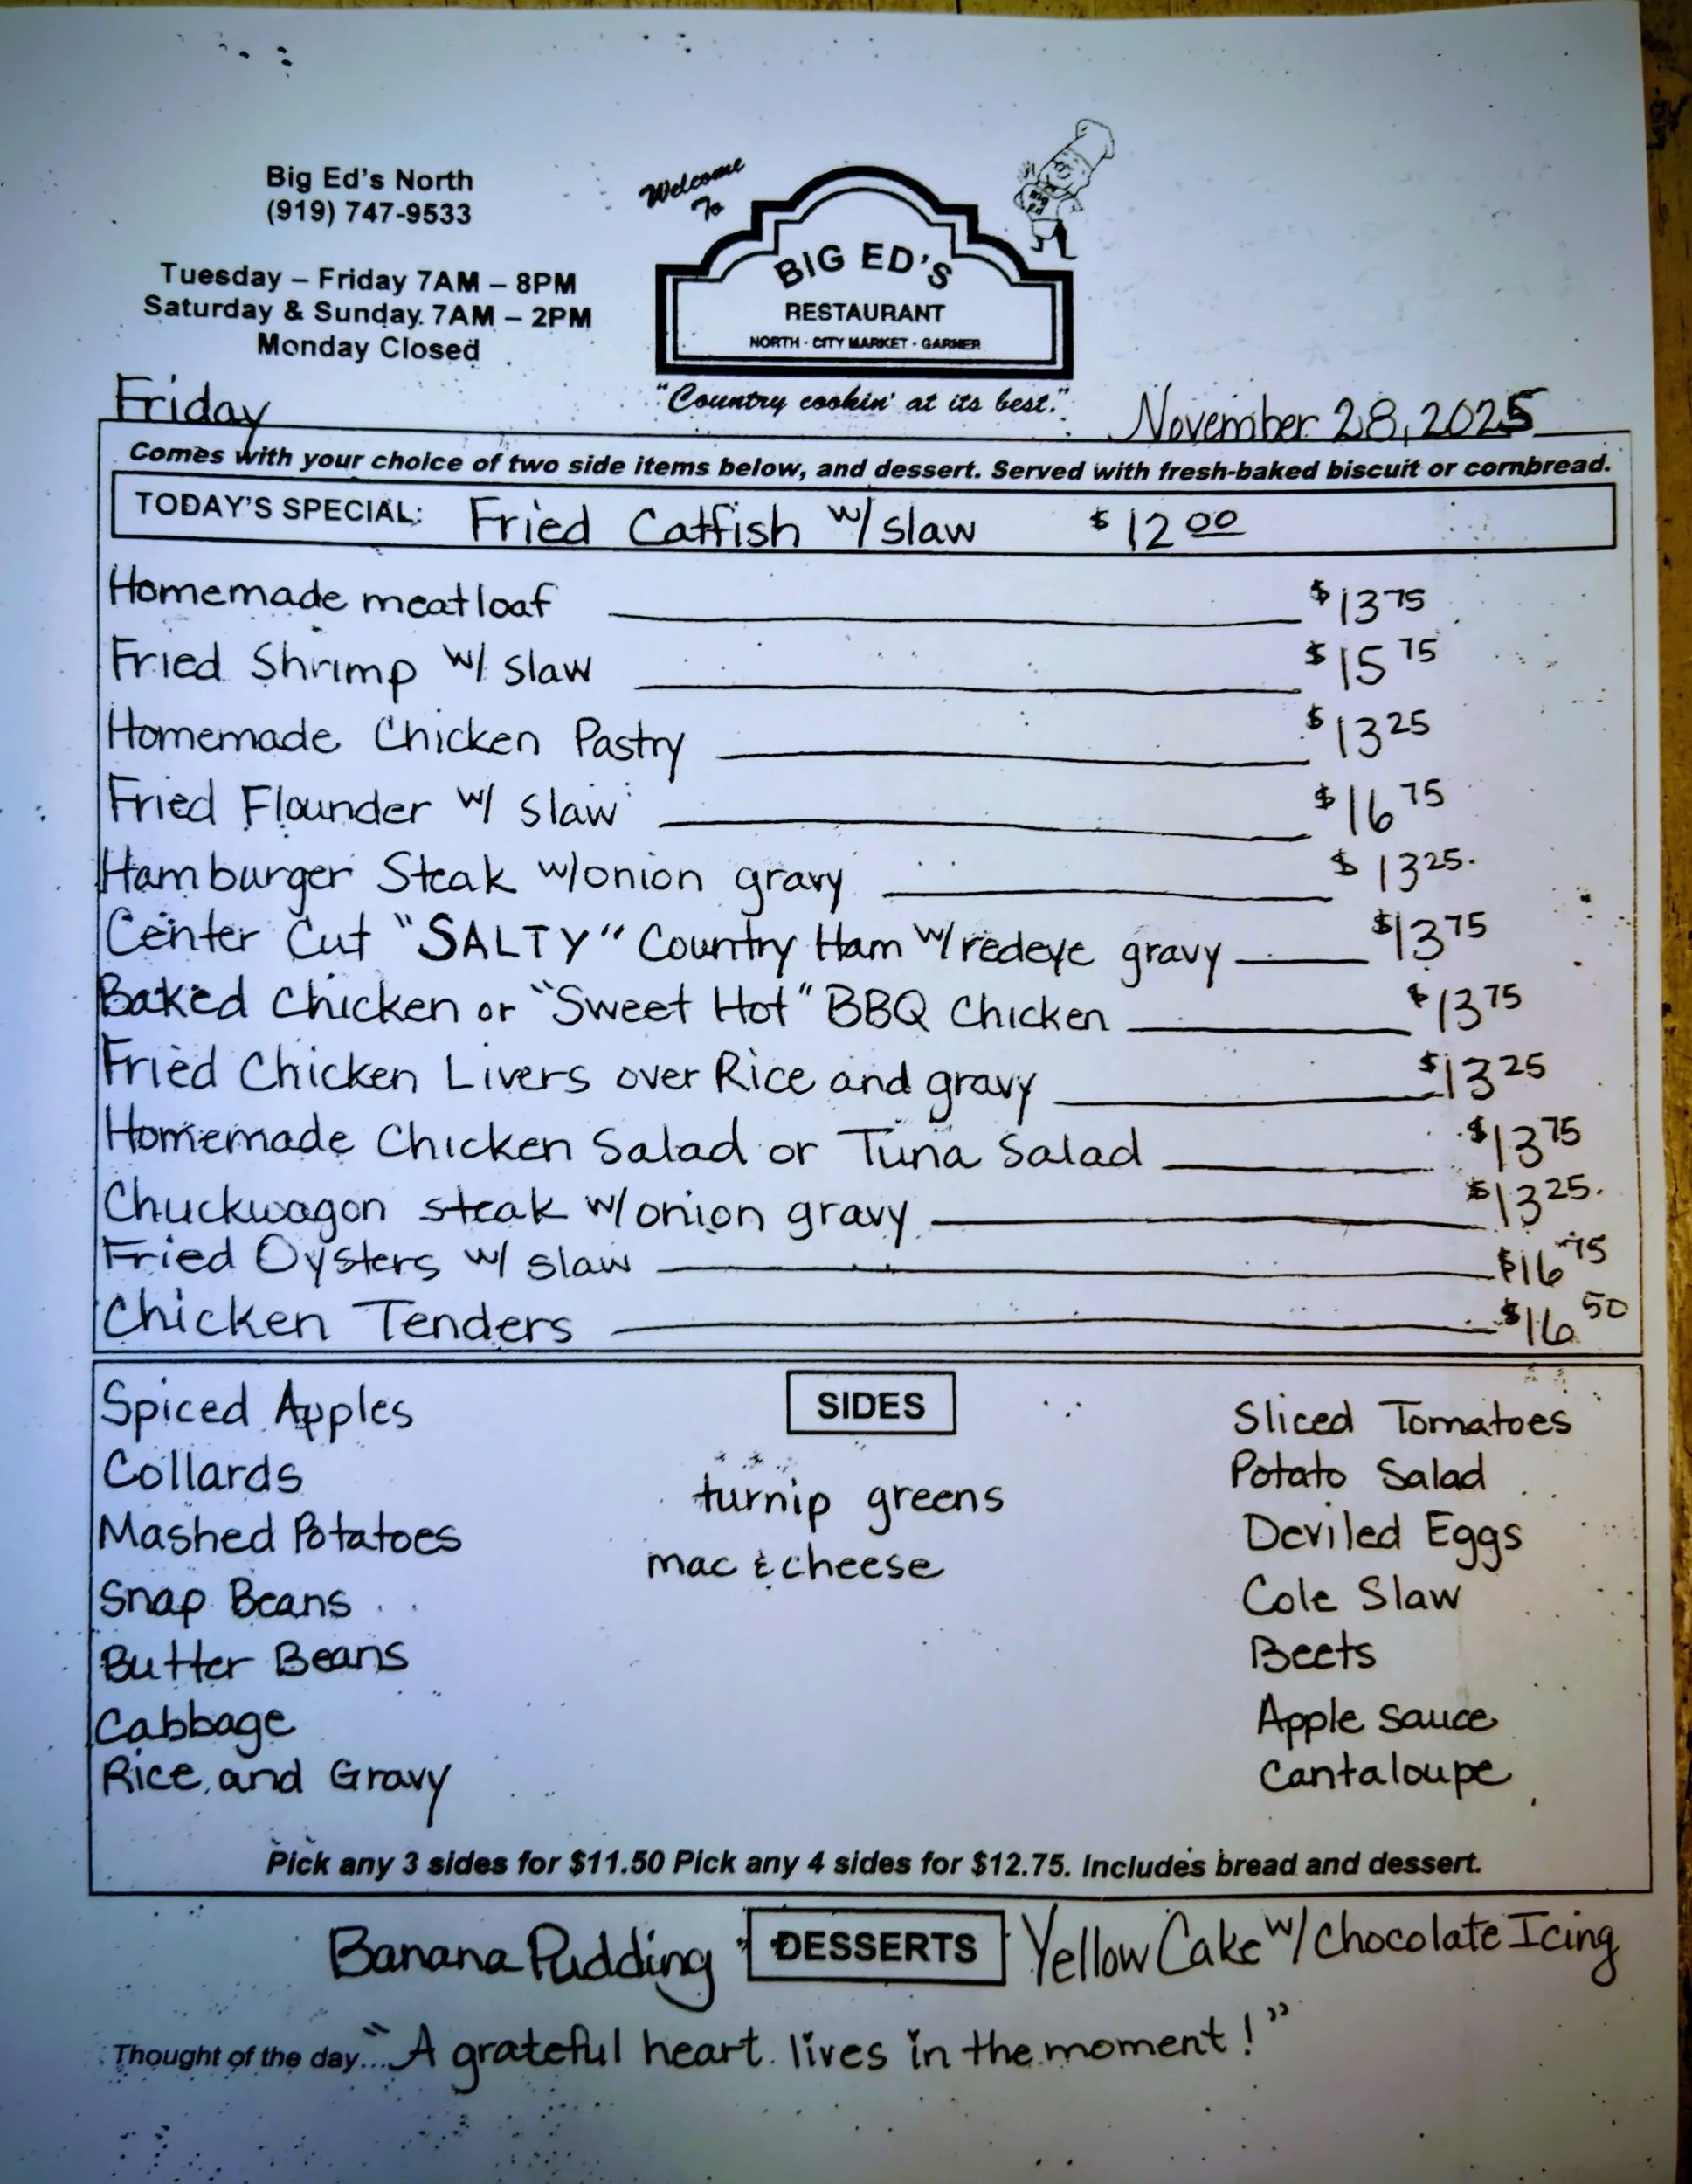 Big Ed's North
(919) 747-9533
Tuesday – Friday 7AM – 8PM
Saturday & Sunday. 7AM – 2PM
Monday Closed
Welcome
To
BIG ED'S
RESTAURANT
NORTH - CITY MARKET - GARNER
"Country cookin' at its best."
Big
Ed
Friday
November 28, 2025
Comes with your choice of two side items below, and dessert. Served with fresh-baked biscuit or cornbread.
TODAY'S SPECIAL: Fried Catfish w/ slaw $12.00
Homemade meatloaf $13 75
Fried Shrimp w/ slaw $15 75
Homemade Chicken Pastry $13 25
Fried Flounder w/ slaw $16 75
Hamburger Steak w/onion gravy $13 25
Center Cut "SALTY" Country Ham w/redeye gravy $13 75
Baked Chicken or "Sweet Hot" BBQ Chicken $13 75
Fried Chicken Livers over Rice and gravy $13 25
Homemade Chicken Salad or Tuna Salad $13 75
Chuckwagon steak w/onion gravy $13 25
Fried Oysters w/ slaw $16 75
Chicken Tenders $16 50
SIDES
Spiced Apples
Collards
Mashed Potatoes
Snap Beans
Butter Beans
Cabbage
Rice and Gravy
turnip greens
mac & cheese
Sliced Tomatoes
Potato Salad
Deviled Eggs
Cole Slaw
Beets
Apple Sauce
Cantaloupe
Pick any 3 sides for $11.50 Pick any 4 sides for $12.75. Includes bread and dessert.
Banana Pudding DESSERTS Yellow Cake w/ Chocolate Icing
Thought of the day... "A grateful heart lives in the moment!"